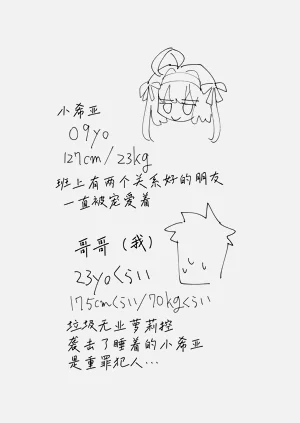 小希亚
09yo
127cm/23kg
班上有两个关系好的朋友
一直被宠爱着
哥哥（我）
23yoくらい
175cmくらい/70kgくらい
垃圾无业萝莉控
袭击了睡着的小希亚
是重罪犯人…